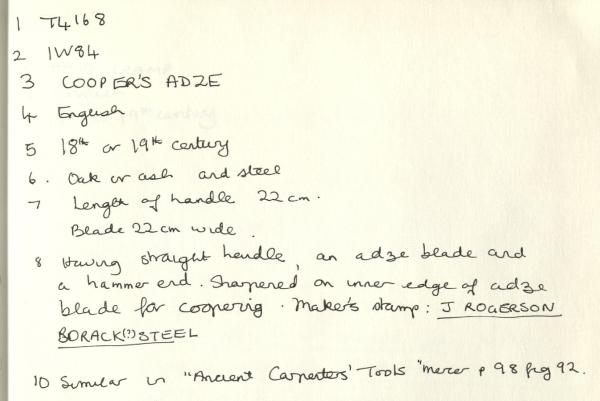 1 T4168
2 IW84
3 COOPER'S ADZE
4 English
5 18th or 19th century
6. Oak or ash and steel
7 Length of handle 22 cm.
Blade 22 cm wide.
8 Having straight handle, an adze blade and
a hammer end. Sharpened on inner edge of adze
blade for coopering. Maker's stamp: J ROGERSON
BORACK(?) STEEL
10 Similar in "Ancient Carpenters' Tools" Mercer p 98 fig 92.